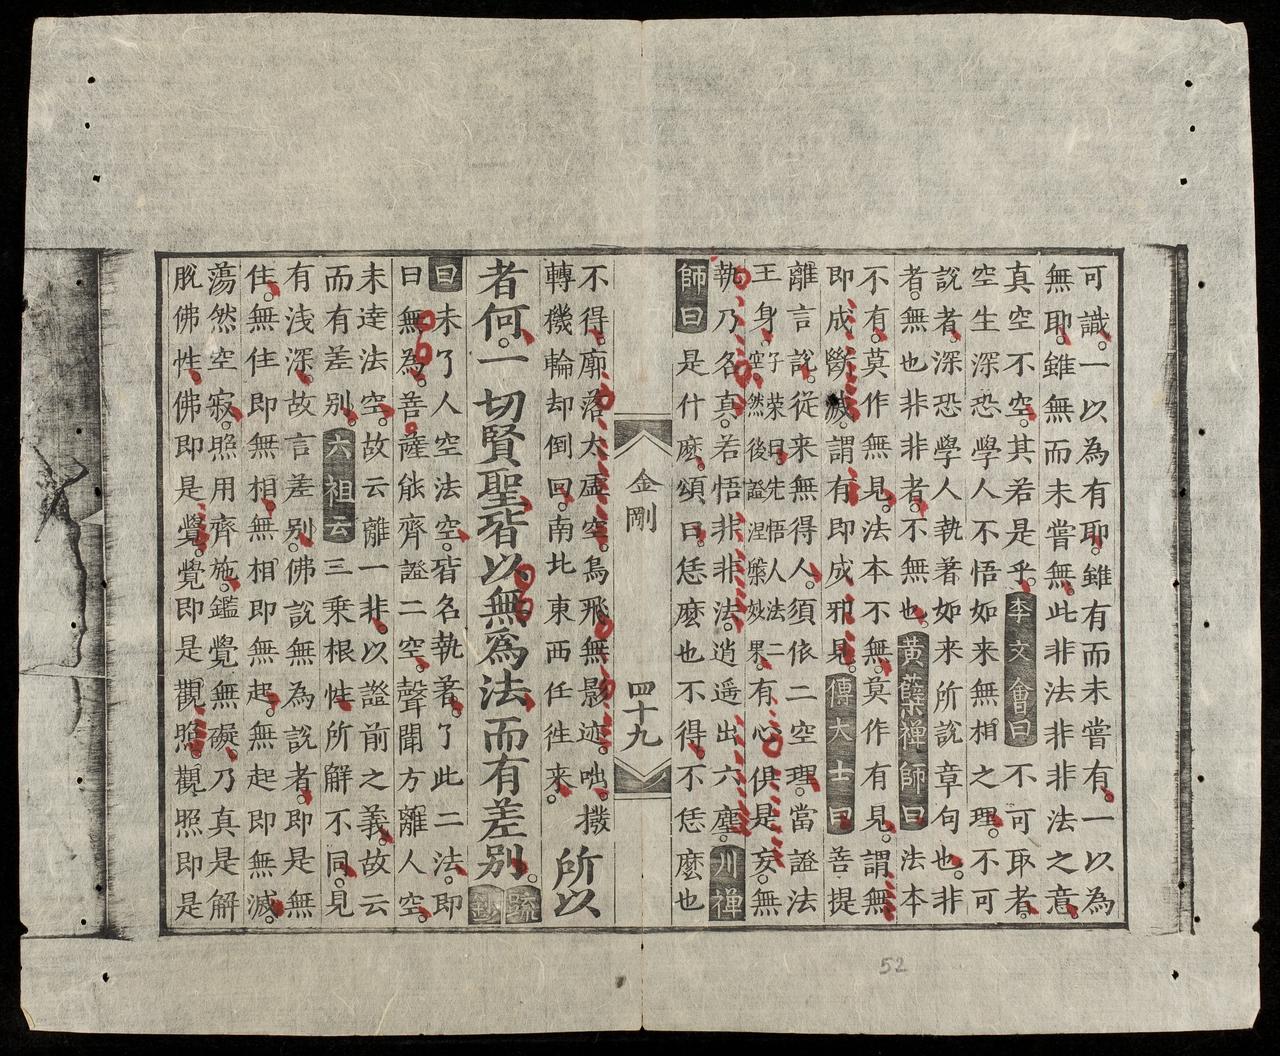 可識。一以為有耶。雖有而未嘗有。一以為
無耶。雖無而未嘗無。此非法非非法之意。
真空不空。其若是乎。李文會曰不可取者。
空生深恐學人不悟如来無相之理。不可
說者。深恐學人執著如来所說章句也。非
者。無也非非者。不無也。黃蘗禅師曰法本
不有。莫作無見。法本不無。莫作有見。謂無
即成斷滅。謂有即成邪見。傳大士曰菩提
離言說。從来無得人。須依二空理。當證法
王身。空子榮曰。先悟人法二
然後證涅槃妙果。有心俱是妄。無
執乃名真。若悟非非法。逍遥出六塵。川禅
師曰是什麼。頌曰。恁麼也不得。不恁麼也
金剛 四十九
不得。廓落太虛空。鳥飛無影迹。咄。撥
轉機輪却倒回。南北東西任徃来。所以
者何。一切賢聖皆以無爲法而有差别。疏鈔
曰未了人空法空。皆名執著。了此二法。即
曰無為。菩薩能齊證二空。聲聞方離人空。
未逹法空。故云離一非。以證前之義。故云
而有差别。六祖云三乘根性所解不同。見
有浅深。故言差别。佛說無為說者。即是無
住。無住即無相。無相即無起。無起即無滅。
蕩然空寂。照用齊施。鑑覺無礙。乃真是解
脫佛性。佛即是覺。覺即是觀照。觀照即是
52